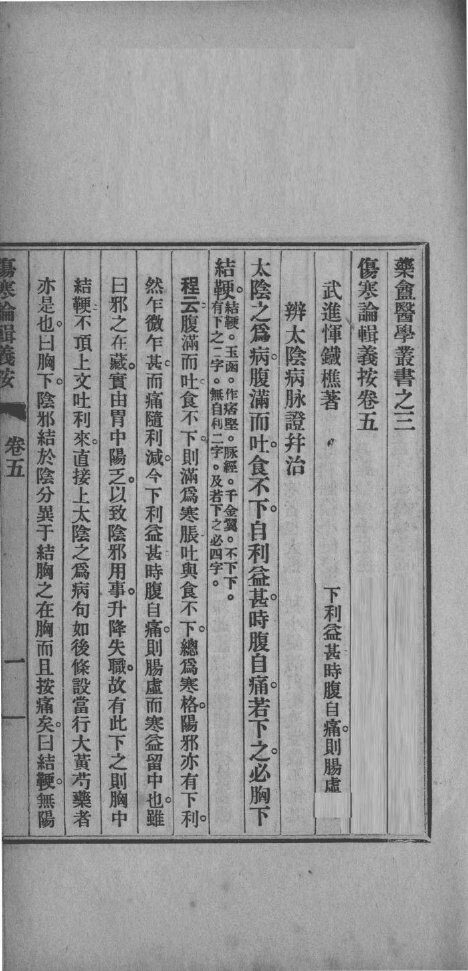 藥盦醫學叢書之三
傷寒論輯義按卷五
武進惲鐵樵著
下利益甚時腹自痛則腸虛
辨太陰病脉證幷治
太陰之爲病腹滿而吐食不下自利益甚時腹自痛若下之必胸下
結鞕。結鞕。玉函。作痞堅。脉經。千金翼。不下下。
有下之二字。無自利二字。及若下之必四字。
程云腹滿而吐食不下則滿爲寒脹吐與食不下總爲寒格陽邪亦有下利
然乍微乍甚而痛隨利減今下利益甚時腹自痛則腸虛而寒益留中也雖
曰邪之在藏實由胃中陽乏以致陰邪用事升降失職故有此下之則胸中
結鞕不頂上文吐利來直接上太陰之爲病句如後條設當行大黃芍藥者
亦是也曰胸下陰邪結於陰分異于結胸之在胸而且按痛矣曰結鞕無陽
傷寒論輯義按
卷五
一